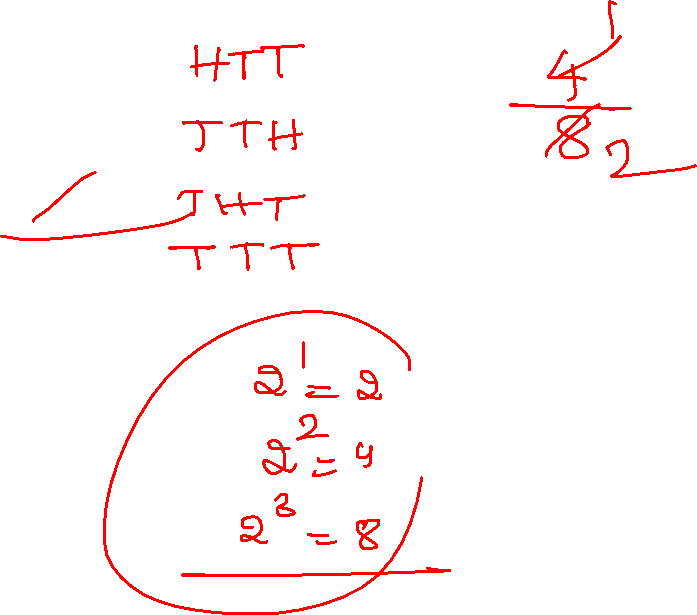 HTT
TTH
THT
TTT
1
4
8 2
2^1 = 2
2^2 = 4
2^3 = 8